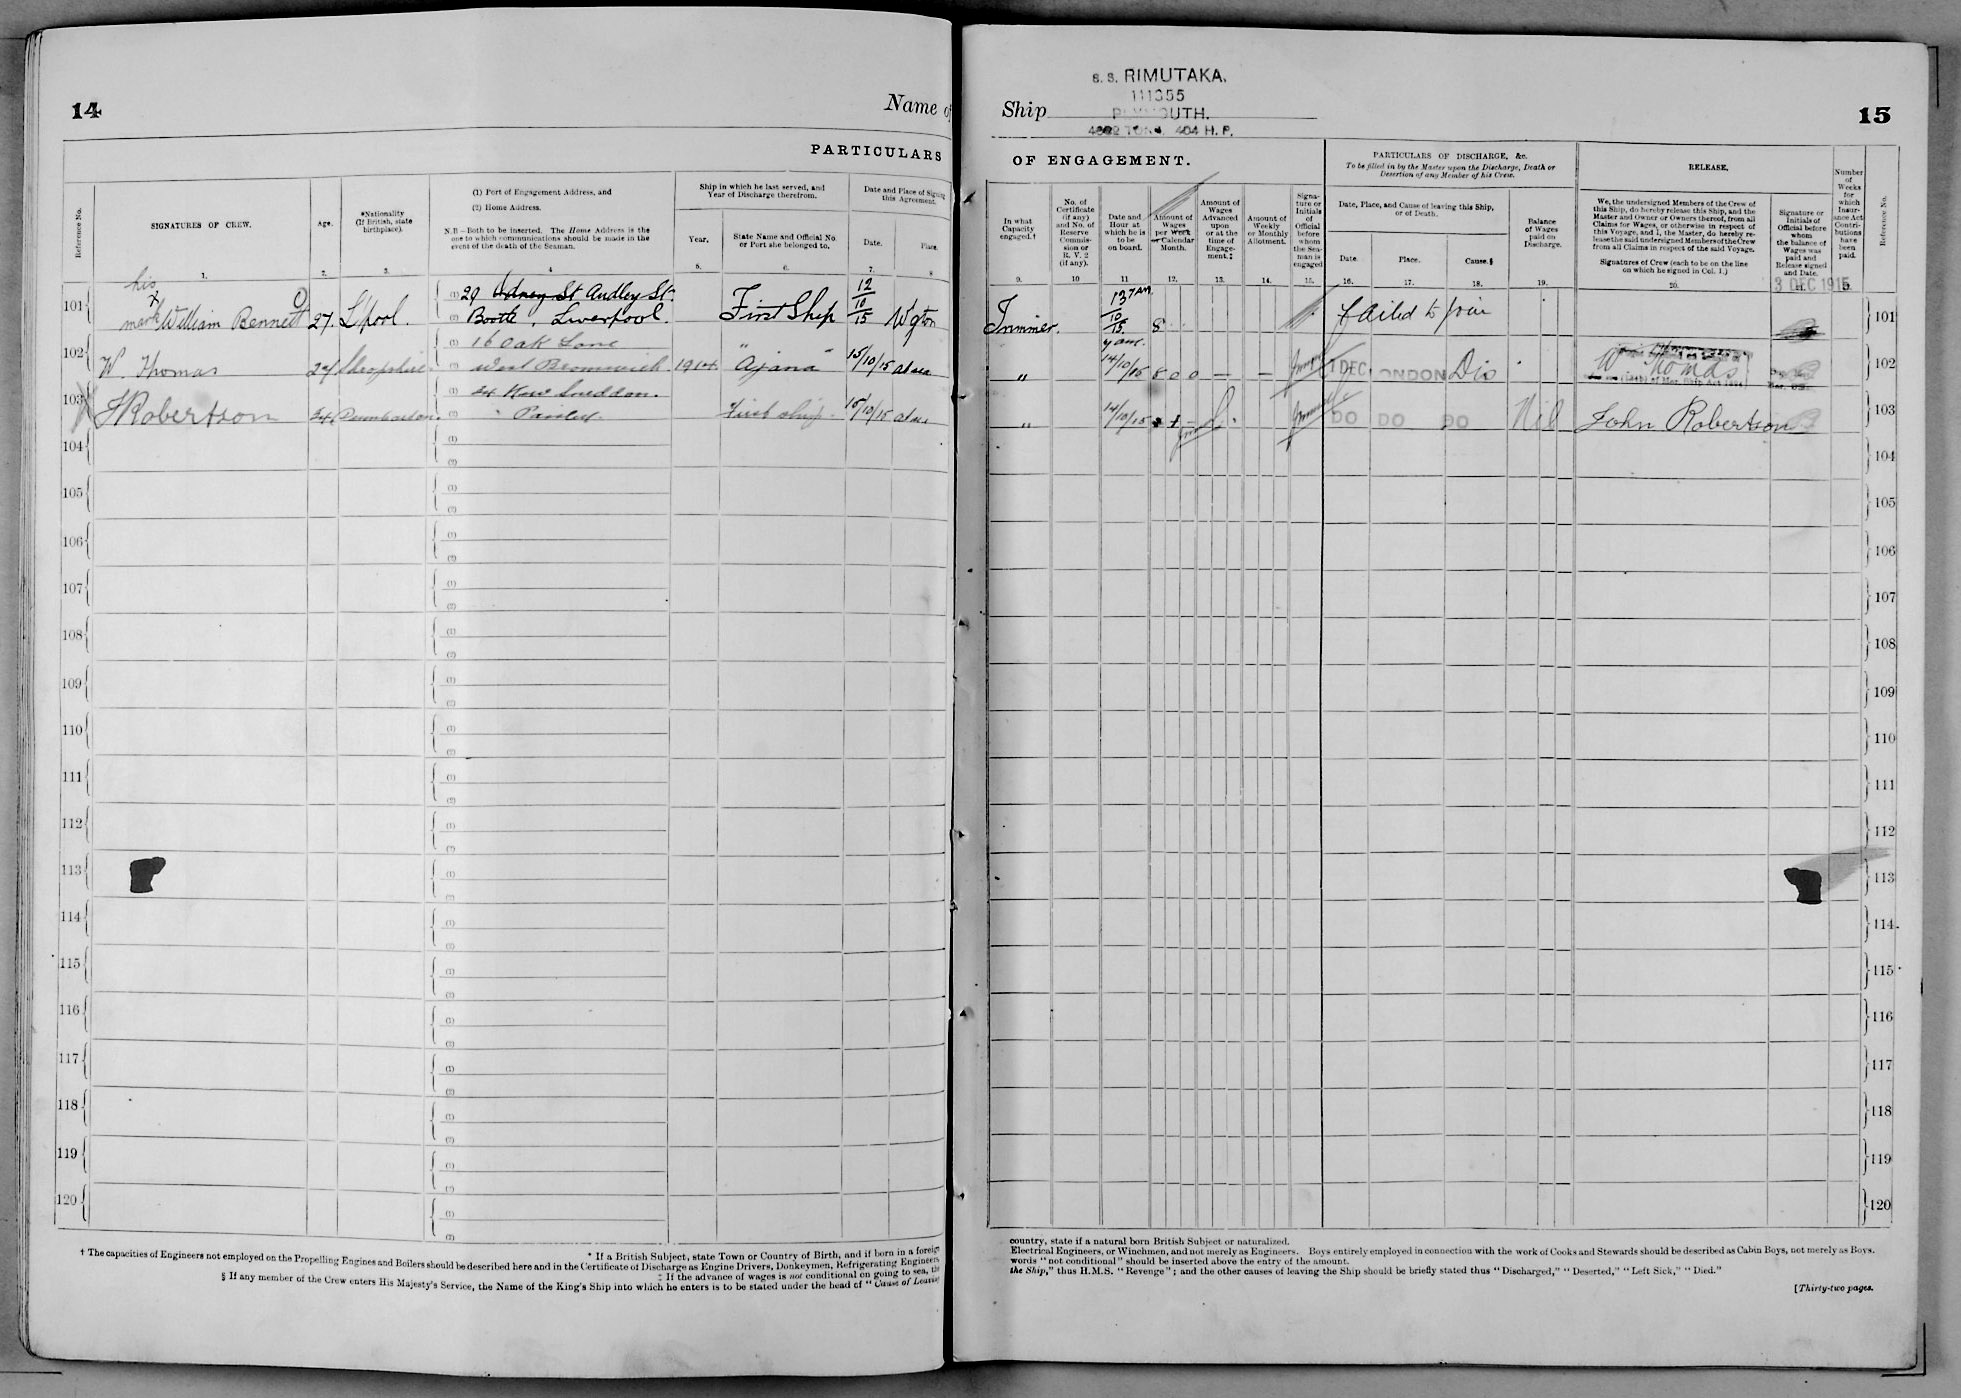 14
Name of
PARTICULARS
Reference No.
SIGNATURES OF CREW.
Age.
*Nationality
(If British, state
birthplace).
(1) Port of Engagement Address, and
(2) Home Address.
N.B.—Both to be inserted. The Home Address is the
one to which communications should be made in the
event of the death of the Seaman.
Ship in which he last served, and
Year of Discharge therefrom.
Year.
State Name and Official No.
or Port she belonged to.
Date and Place of Signing
this Agreement.
Date.
Place.
1.
2.
3.
4
5.
6.
7.
8
101
his
x
mark William Bennett
27.
L'pool.
(1) 29 Sydney St Audley St.
(2) Bootle, Liverpool.
First Ship
12/10/15
Wgton
102
W. Thomas
24
Shropshire
(1) 16 Oak Lane
(2) West Bromwich
1914
"Ajana"
15/10/15
At sea
103
J Robertson
34
Dumbarton
(1) 24 Sneddon.
(2) " Paisley.
First ship.
15/10/15
At sea
104
105
106
107
108
109
110
111
112
113
114
115
116
117
118
119
120
* If a British Subject, state Town or Country of Birth, and if born in a foreign
† The capacities of Engineers not employed on the Propelling Engines and Boilers should be described here and in the Certificate of Discharge as Engine Drivers, Donkeymen, Refrigerating Engineers
‡ If the advance of wages is not conditional on going to sea, the
§ If any member of the Crew enters His Majesty's Service, the Name of the King's Ship into which he enters is to be stated under the head of "Cause of Leaving
S. S. RIMUTAKA.
111355
PLYMOUTH.
TONS, 404 H. P.
Ship
15
OF ENGAGEMENT.
In what
Capacity
engaged.†
No. of
Certificate
(if any)
and No. of
Reserve
Commis-
sion or
R. V. 2
(if any).
Date and
Hour at
which he is
to be
on board.
Amount of
Wages
per Week
or Calendar
Month.
Amount of
Wages
Advanced
upon
or at the
time of
Engage-
ment.‡
Amount of
Weekly
or Monthly
Allotment.
Signa-
ture or
Initials
of
Official
before
whom
the Sea-
man is
engaged
PARTICULARS OF DISCHARGE, &c.
To be filled in by the Master upon the Discharge, Death or
Desertion of any Member of his Crew.
Date, Place, and Cause of leaving this Ship,
or of Death.
Date.
Place.
Cause.§
Balance
of Wages
paid on
Discharge.
RELEASE.
We, the undersigned Members of the Crew of
this Ship, do hereby release this Ship, and the
Master and Owner or Owners thereof, from all
Claims for Wages, or otherwise in respect of
this Voyage, and I, the Master, do hereby re-
lease the said undersigned Members of the Crew
from all Claims in respect of the said Voyage.
Signatures of Crew (each to be on the line
on which he signed in Col. 1.)
Signature or
Initials of
Official before
whom
the balance of
Wages was
paid and
Release signed
and Date.
Number
of
Weeks
for
which
Insur-
ance Act
Contri-
butions
have
been
paid.
Reference No.
9.
10
11
12.
13.
14.
15.
16.
17.
18.
19.
20.
3 DEC 1915
Trimmer.
13 7 AM.
10/15
8
Failed to join
101
"
14/10/15
8 0 0
— —
1 DEC
LONDON
Dis
W Thomas
102
"
14/10/15
DO
DO
DO
Nil
John Robertson
103
104
105
106
107
108
109
110
111
112
113
114
115
116
117
118
119
120
country, state if a natural born British Subject or naturalized.
Electrical Engineers, or Winchmen, and not merely as Engineers. Boys entirely employed in connection with the work of Cooks and Stewards should be described as Cabin Boys, not merely as Boys.
words "not conditional" should be inserted above the entry of the amount.
the Ship," thus H.M.S. "Revenge"; and the other causes of leaving the Ship should be briefly stated thus "Discharged," "Deserted," "Left Sick," "Died."
[Thirty-two pages.